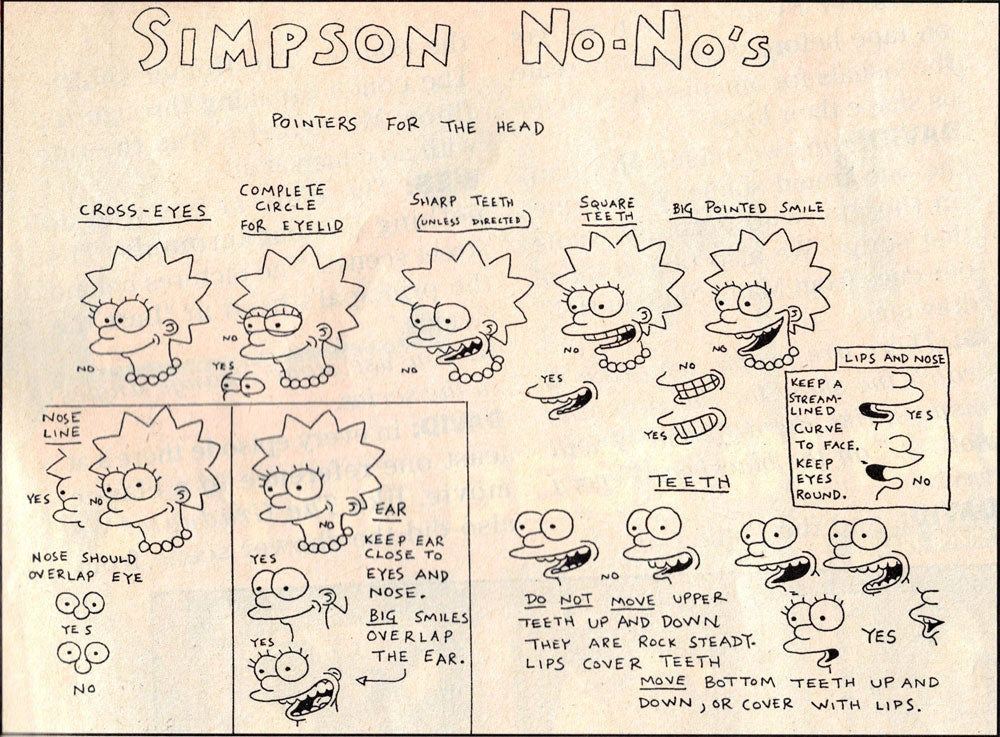 SIMPSON NO-NO'S
POINTERS FOR THE HEAD
CROSS-EYES
NO
COMPLETE
CIRCLE
FOR EYELID
NO
YES
SHARP TEETH
(UNLESS DIRECTED)
NO
SQUARE
TEETH
NO
YES
NO
YES
BIG POINTED SMILE
NO
LIPS AND NOSE
KEEP A
STREAM-
LINED
CURVE
TO FACE.
KEEP
EYES
ROUND.
YES
NO
NOSE
LINE
YES
NO
NOSE SHOULD
OVERLAP EYE
YES
NO
NO
EAR
KEEP EAR
CLOSE TO
EYES AND
NOSE.
BIG SMILES
OVERLAP
THE EAR.
YES
YES
TEETH
NO
DO NOT MOVE UPPER
TEETH UP AND DOWN
THEY ARE ROCK STEADY.
LIPS COVER TEETH
YES
MOVE BOTTOM TEETH UP AND
DOWN, OR COVER WITH LIPS.
DAVID: in every episode there's at
least one reference to a
movie.